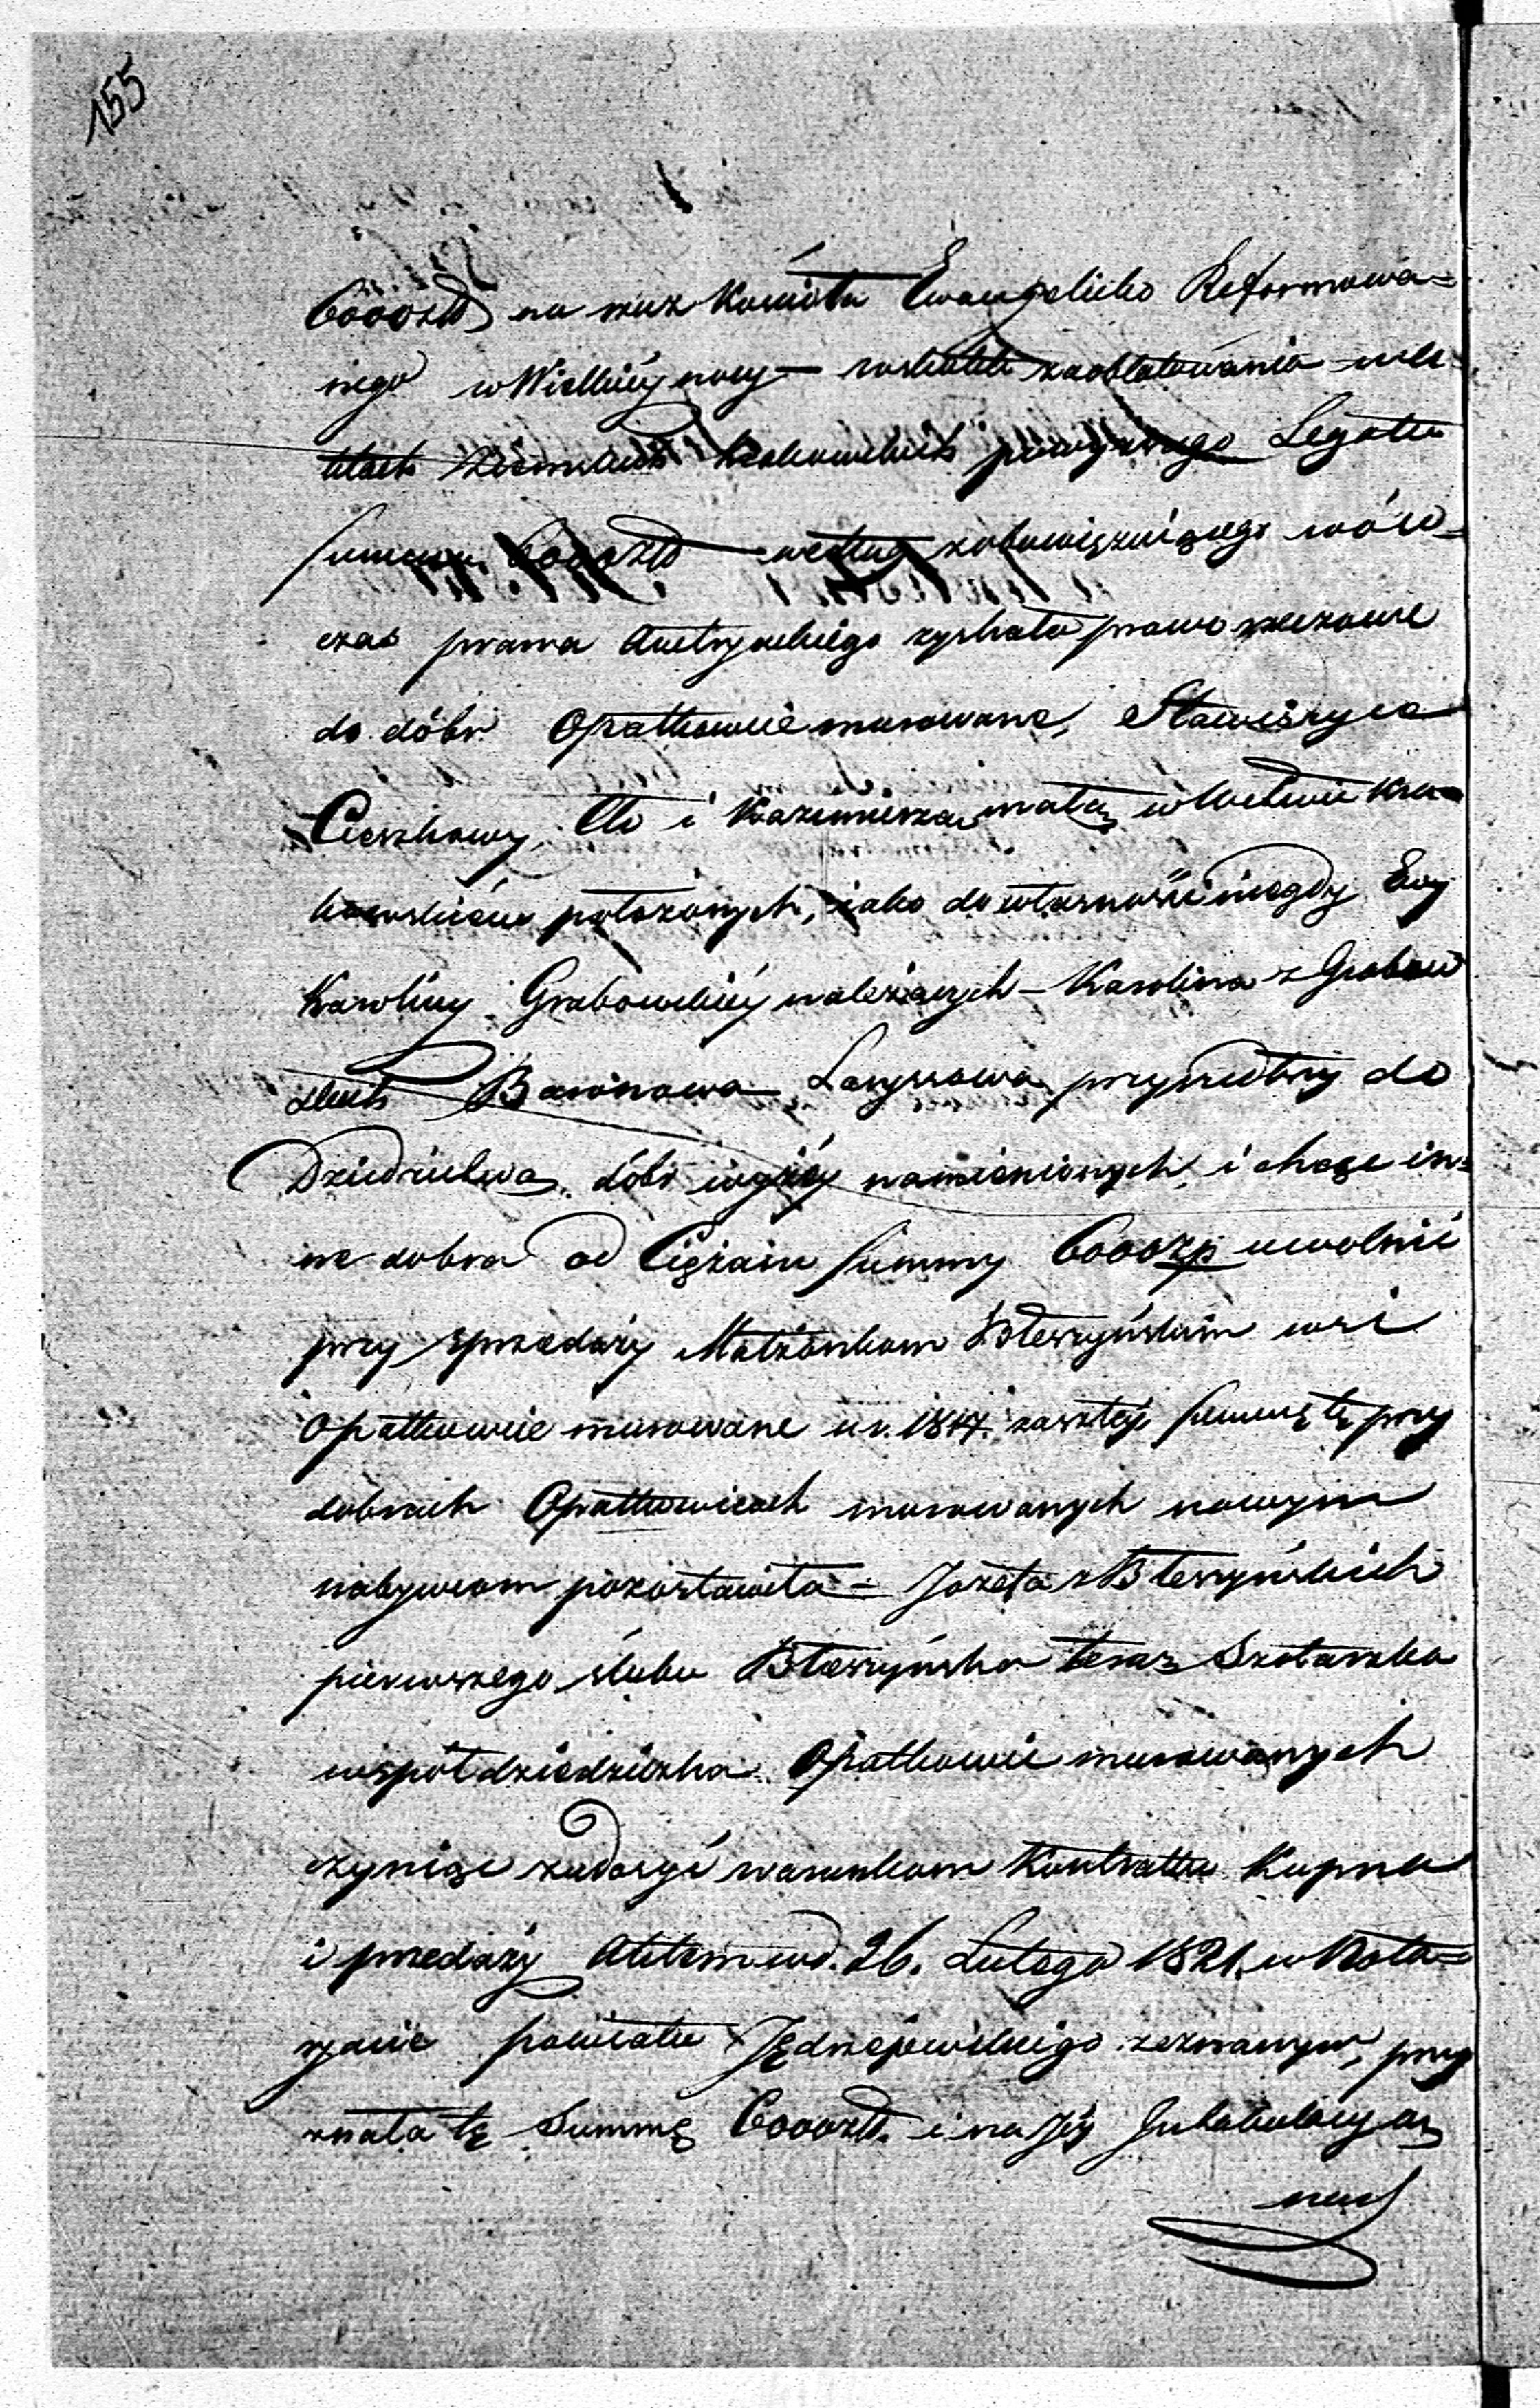 155
6000zł na rzecz Kościoła Ewangelicko Reformowa=
nego w Wielkiéynocy — wskutek zaoblatowania w ak-
tach Ziemskich Krakowskich powyższego Legatu
summa 6000zł — według zobowiązuiącego wów-
czas prawa Austryackiego zyskała prawo rzeczowe
do dóbr Opatkowice murowane, Stawiszyce
Cieszkowy, Cło i Kazimierza mała w Wdztwie Kra-
kowskiém położonych, iako do własności niegdy Ewy
Karoliny Grabowskiéy należących — Karolina z Grabow
skich Baronowa Laryssowa przyszedłszy do
Dziedzictwa dóbr wyżéy namienionych, i chcąc in=
ne dobra od Ciężaru summy 6000zp uwolnić
przy sprzedaży Małżonkom Błeszyńskim wsi
Opatkowice murowane w r. 1817. zaszłéj summę tę przy
dobrach Opatkowicach murowanych nowym
nabywcom pozostawiła — Józefa z Błeszyńskich
pierwszego ślubu Błeszyńska teraz Szołarska
współdziedziczka Opatkowic murowanych
czyniąc zadosyć warunkom Kontraktu Kupna
i przedaży Aktem w d. 26. Lutego 1821. w Nota=
ryacie powiatu Jędrzejewskiego zeznanym, przy
znała tę Summę 6000zł. i na jéy Intabulacyą